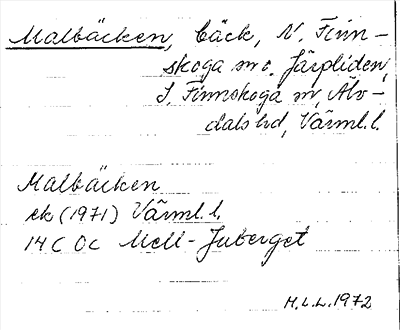 Malbäcken, bäck, N. Finn-
skoga sn o. Järpliden,
S. Finnskoga sn, Älv-
dals hd, Värml. l.
Malbäcken
ek (1971) Värml. l.
14 C 0c Mell-Juberget
H.L.L. 1972